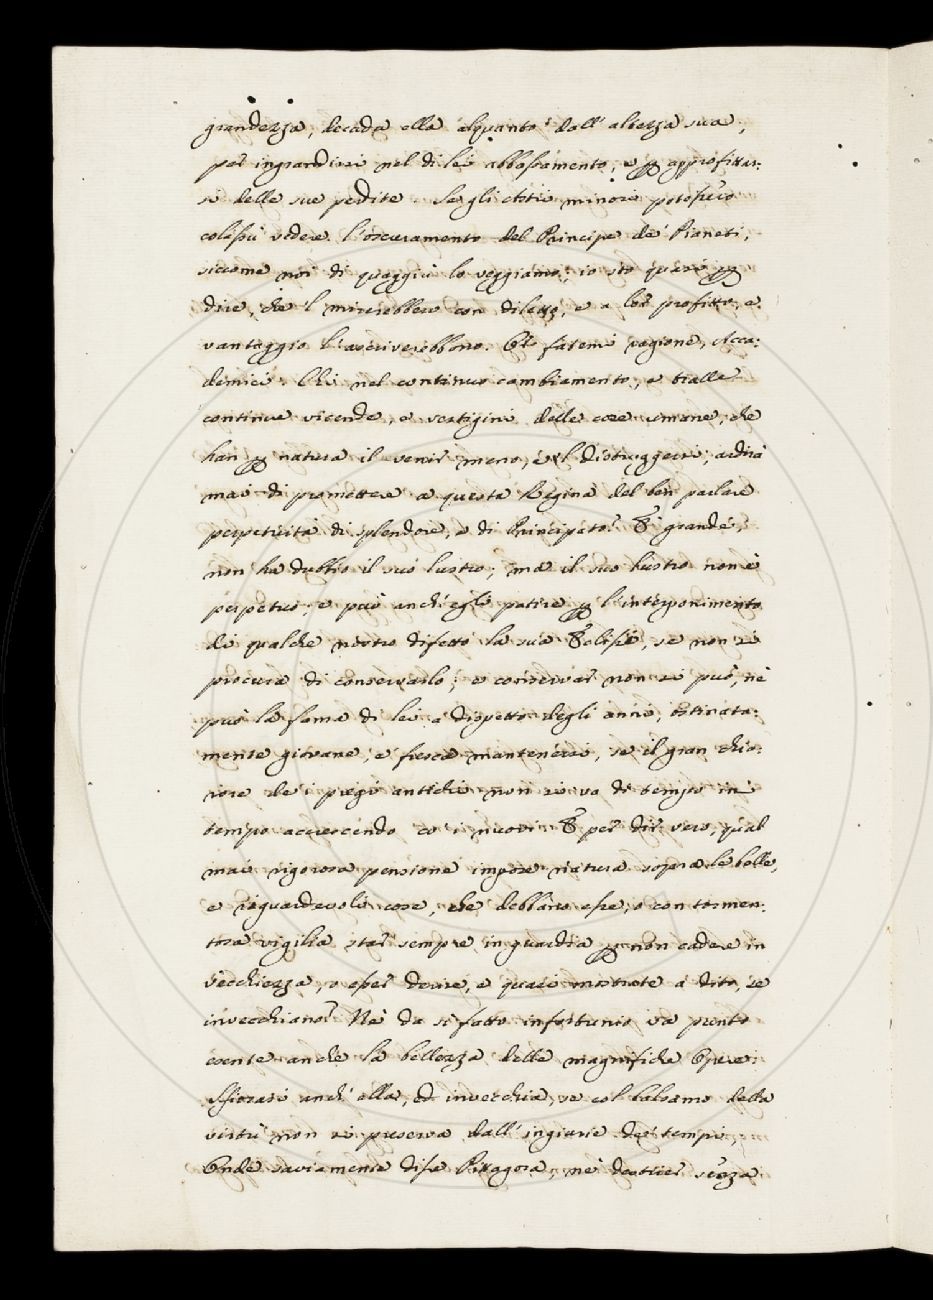 grandezza, decada ella alquanto dall' altezza sua,
per ingrandirsi nel di lei abbassamento, e p approfittar:
si delle sue perdite. Se gli Astri minori potessero
colassù vedere l'oscuramento del Principe de' Pianeti,
siccome noi di quaggiù lo veggiamo; io sto quasi p
dire, che 'l mirerebbero con diletto, e a lor profitto, e
vantaggio l'ascriverebbono. Et fatemi ragione, Acca:
demici. Chi nel continuo cambiamento, e tralle
continue vicende, e vertigini delle cose umane, che
han p natura il venir meno, e 'l distruggersi, ardirà
mai di promettere a questa Regina del ben parlare
perpetuità di splendore, e di Principato? È grande,
non ha dubbio il suo lustro; ma il suo lustro non è
perpetuo; e può anch' egli patire p l'interponimento
di qualche nostro difetto la sua Eclisse, se non si
procura di conservarlo; e conservar non si può, nè
può la fama di lei a dispetto degli anni, ostinata:
mente giovane, e fresca mantenersi, se il gran chia:
rore de i pregi antichi non si va di tempo in
tempo accrescendo co' i nuovi. E per dir vero, qual
mai rigorosa pensione impose natura sopra le belle,
e riguardevoli cose, che debbano esse, o con tormen:
tosa vigilia star sempre in guardia p non cadere in
vecchiezza, o esser derise, e quasi mostrate a dito, se
invecchiano? Nè da sì fatto infortunio va punto
esente anche la bellezza delle magnifiche Opere.
Sfiorasi anch' ella, ed invecchia, se col balsamo della
virtù non si preserva dall' ingiurie de' tempi,
Onde saviamente disse Pitagora, nè senza